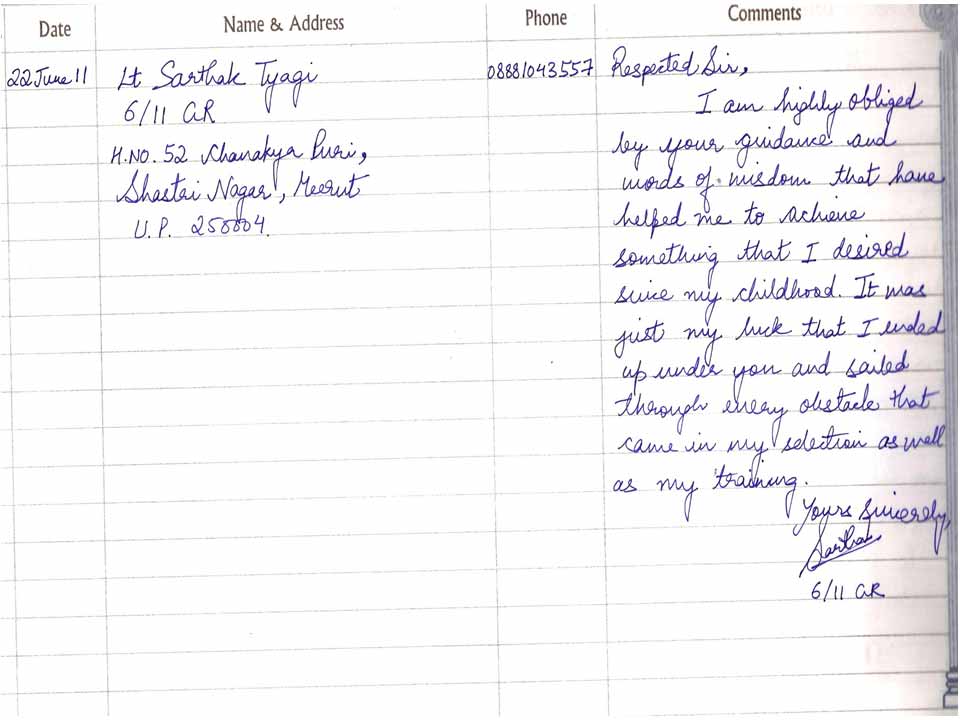 Date
Name & Address
Phone
Comments
22 June 11
Lt Sarthak Tyagi
6/11 GR
H.NO. 52 Chanakya Puri,
Shastri Nagar, Meerut
U.P.
08881043557
Respected Sir,
I am highly obliged
by your guidance and
words of wisdom that have
helped me to achieve
something that I desired
since my childhood. It was
just my luck that I ended
up under you and sailed
through every obstacle that
came in my selection as well
as my training.
Yours Sincerely,
Sarthak
6/11 GR